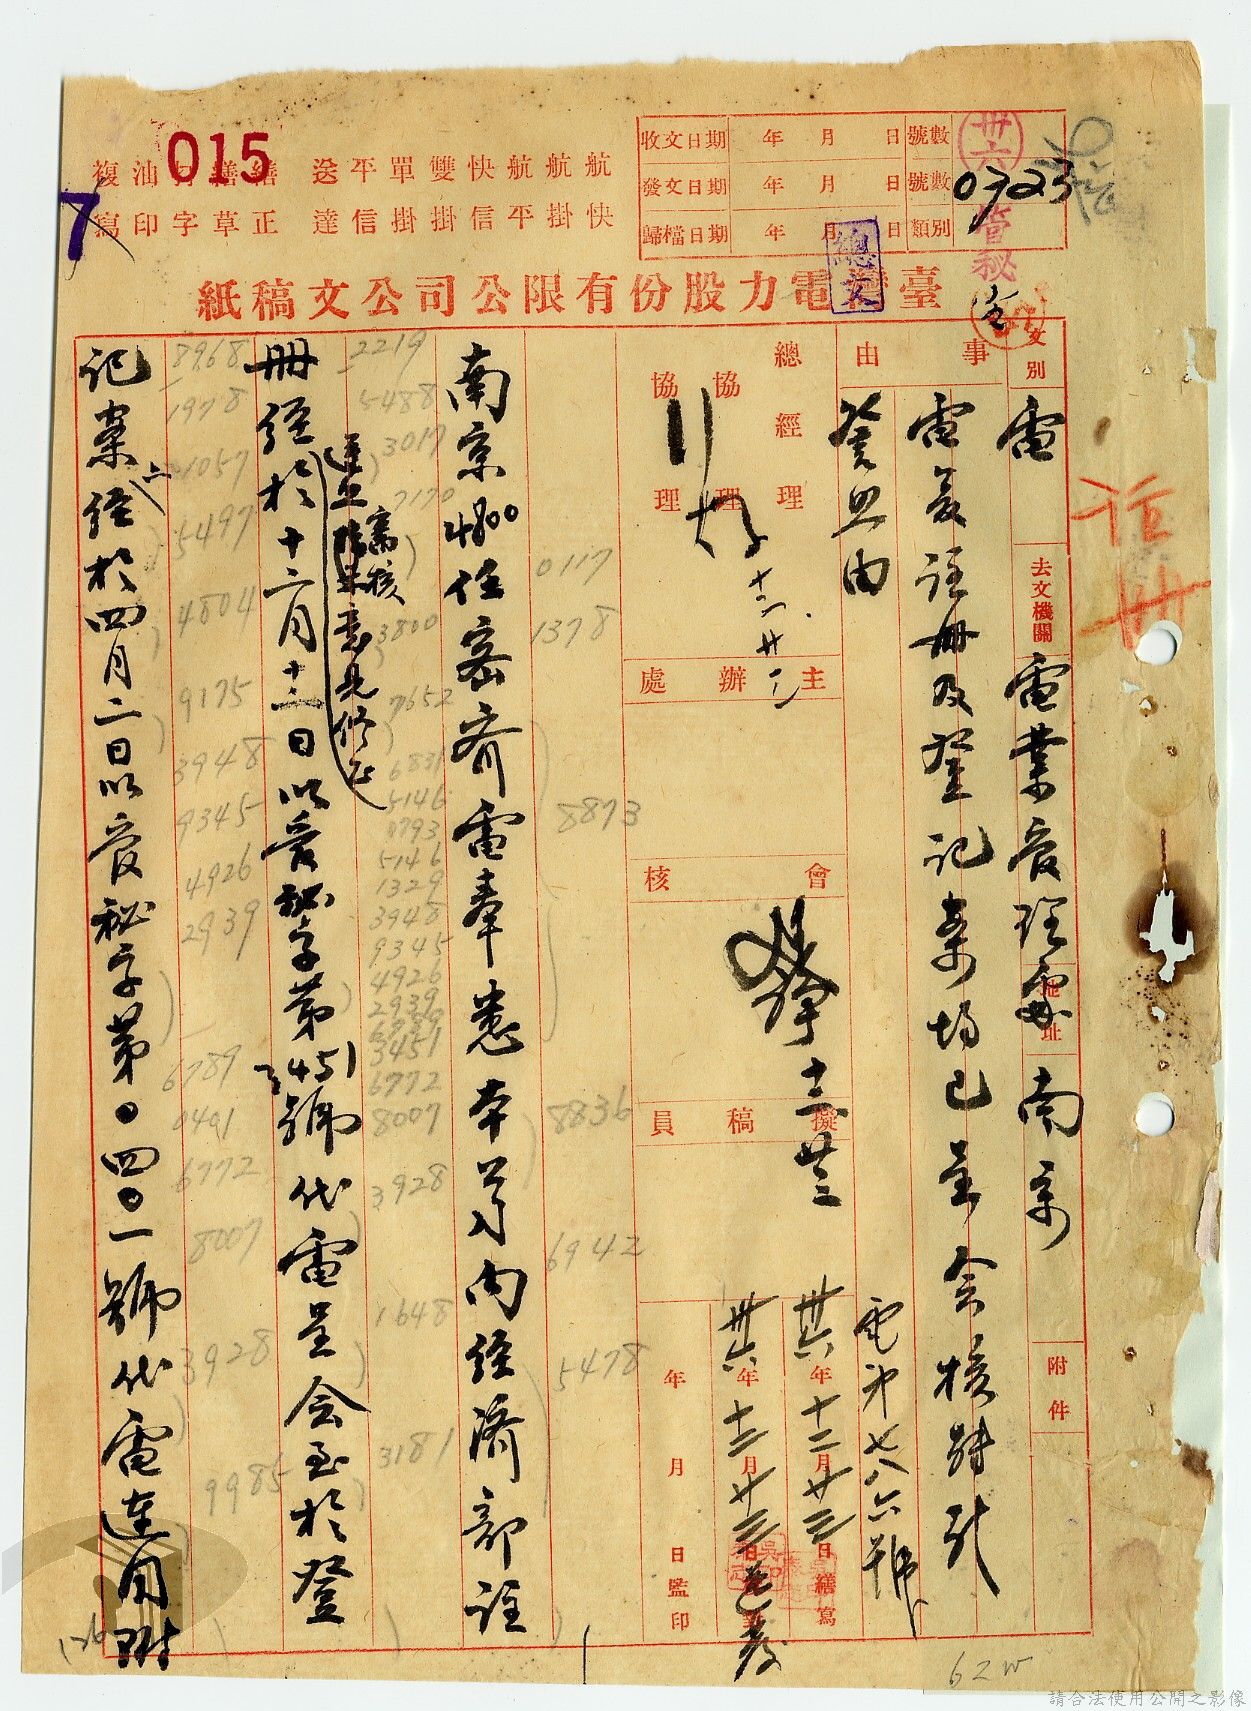 015
7
航快 航掛 航平 快信 雙掛 單掛 平信 送達
繕正 繕草 打字 油印 複寫
收文日期 年 月 日 號數
發文日期 年 月 日 號數
歸檔日期 年 月 日 類別
卅六
管秘
0723
總文
臺灣電力股份有限公司文稿紙
文別
電
去文機關
電業管理處
住址
南京
附件
註冊
事由
電復註冊及登記案均已呈会核轉祈
詧照由
電沖七八六號
總經理
協理
協理
十二、廿二
主辦處
會核
十二廿三
擬稿員
卅六年十二月廿三日繕寫
卅六年十二月廿三日
年 月 日監印
0117
1378
8873
8836
6942
5478
南京4800任密齊電奉悉本公司向經濟部註
2219
5488
3017
7170
3800
7652
6831
5146
0793
5146
1329
3948
9345
4926
2939
6789
3451
6772
8007
3928
1648
3181
遵照審核意見修正
冊經於十二月十三日以管秘字第451號代電呈会至於登
8968
1978
1057
5497
4804
9175
3948
9345
4926
2939
6789
0401
6772
8007
3928
9985
記案亦經於四月二日以管秘字第〇四〇一號代電連同附
62w
請合法使用公開之影像